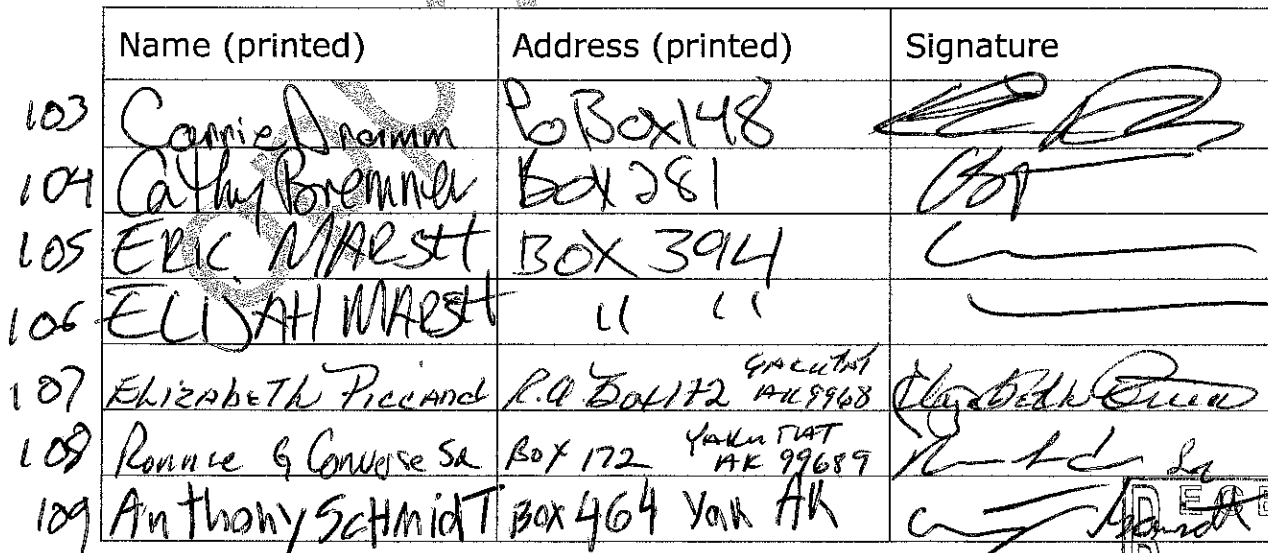 Name (printed) Address (printed) Signature
103 Carrie Dramm Po Box 148
104 Cathy Bremner Box 281
105 ERIC MARSH BOX 394
106 ELIJAH MARSH " "
107 Elizabeth Piccard P.O. Box 172 YAKUTAT AK 9968
108 Ronnie G Converse Sr BOX 172 YAKUTAT AK 99689 Sr
109 Anthony SCHmidT Box 464 Yak AK